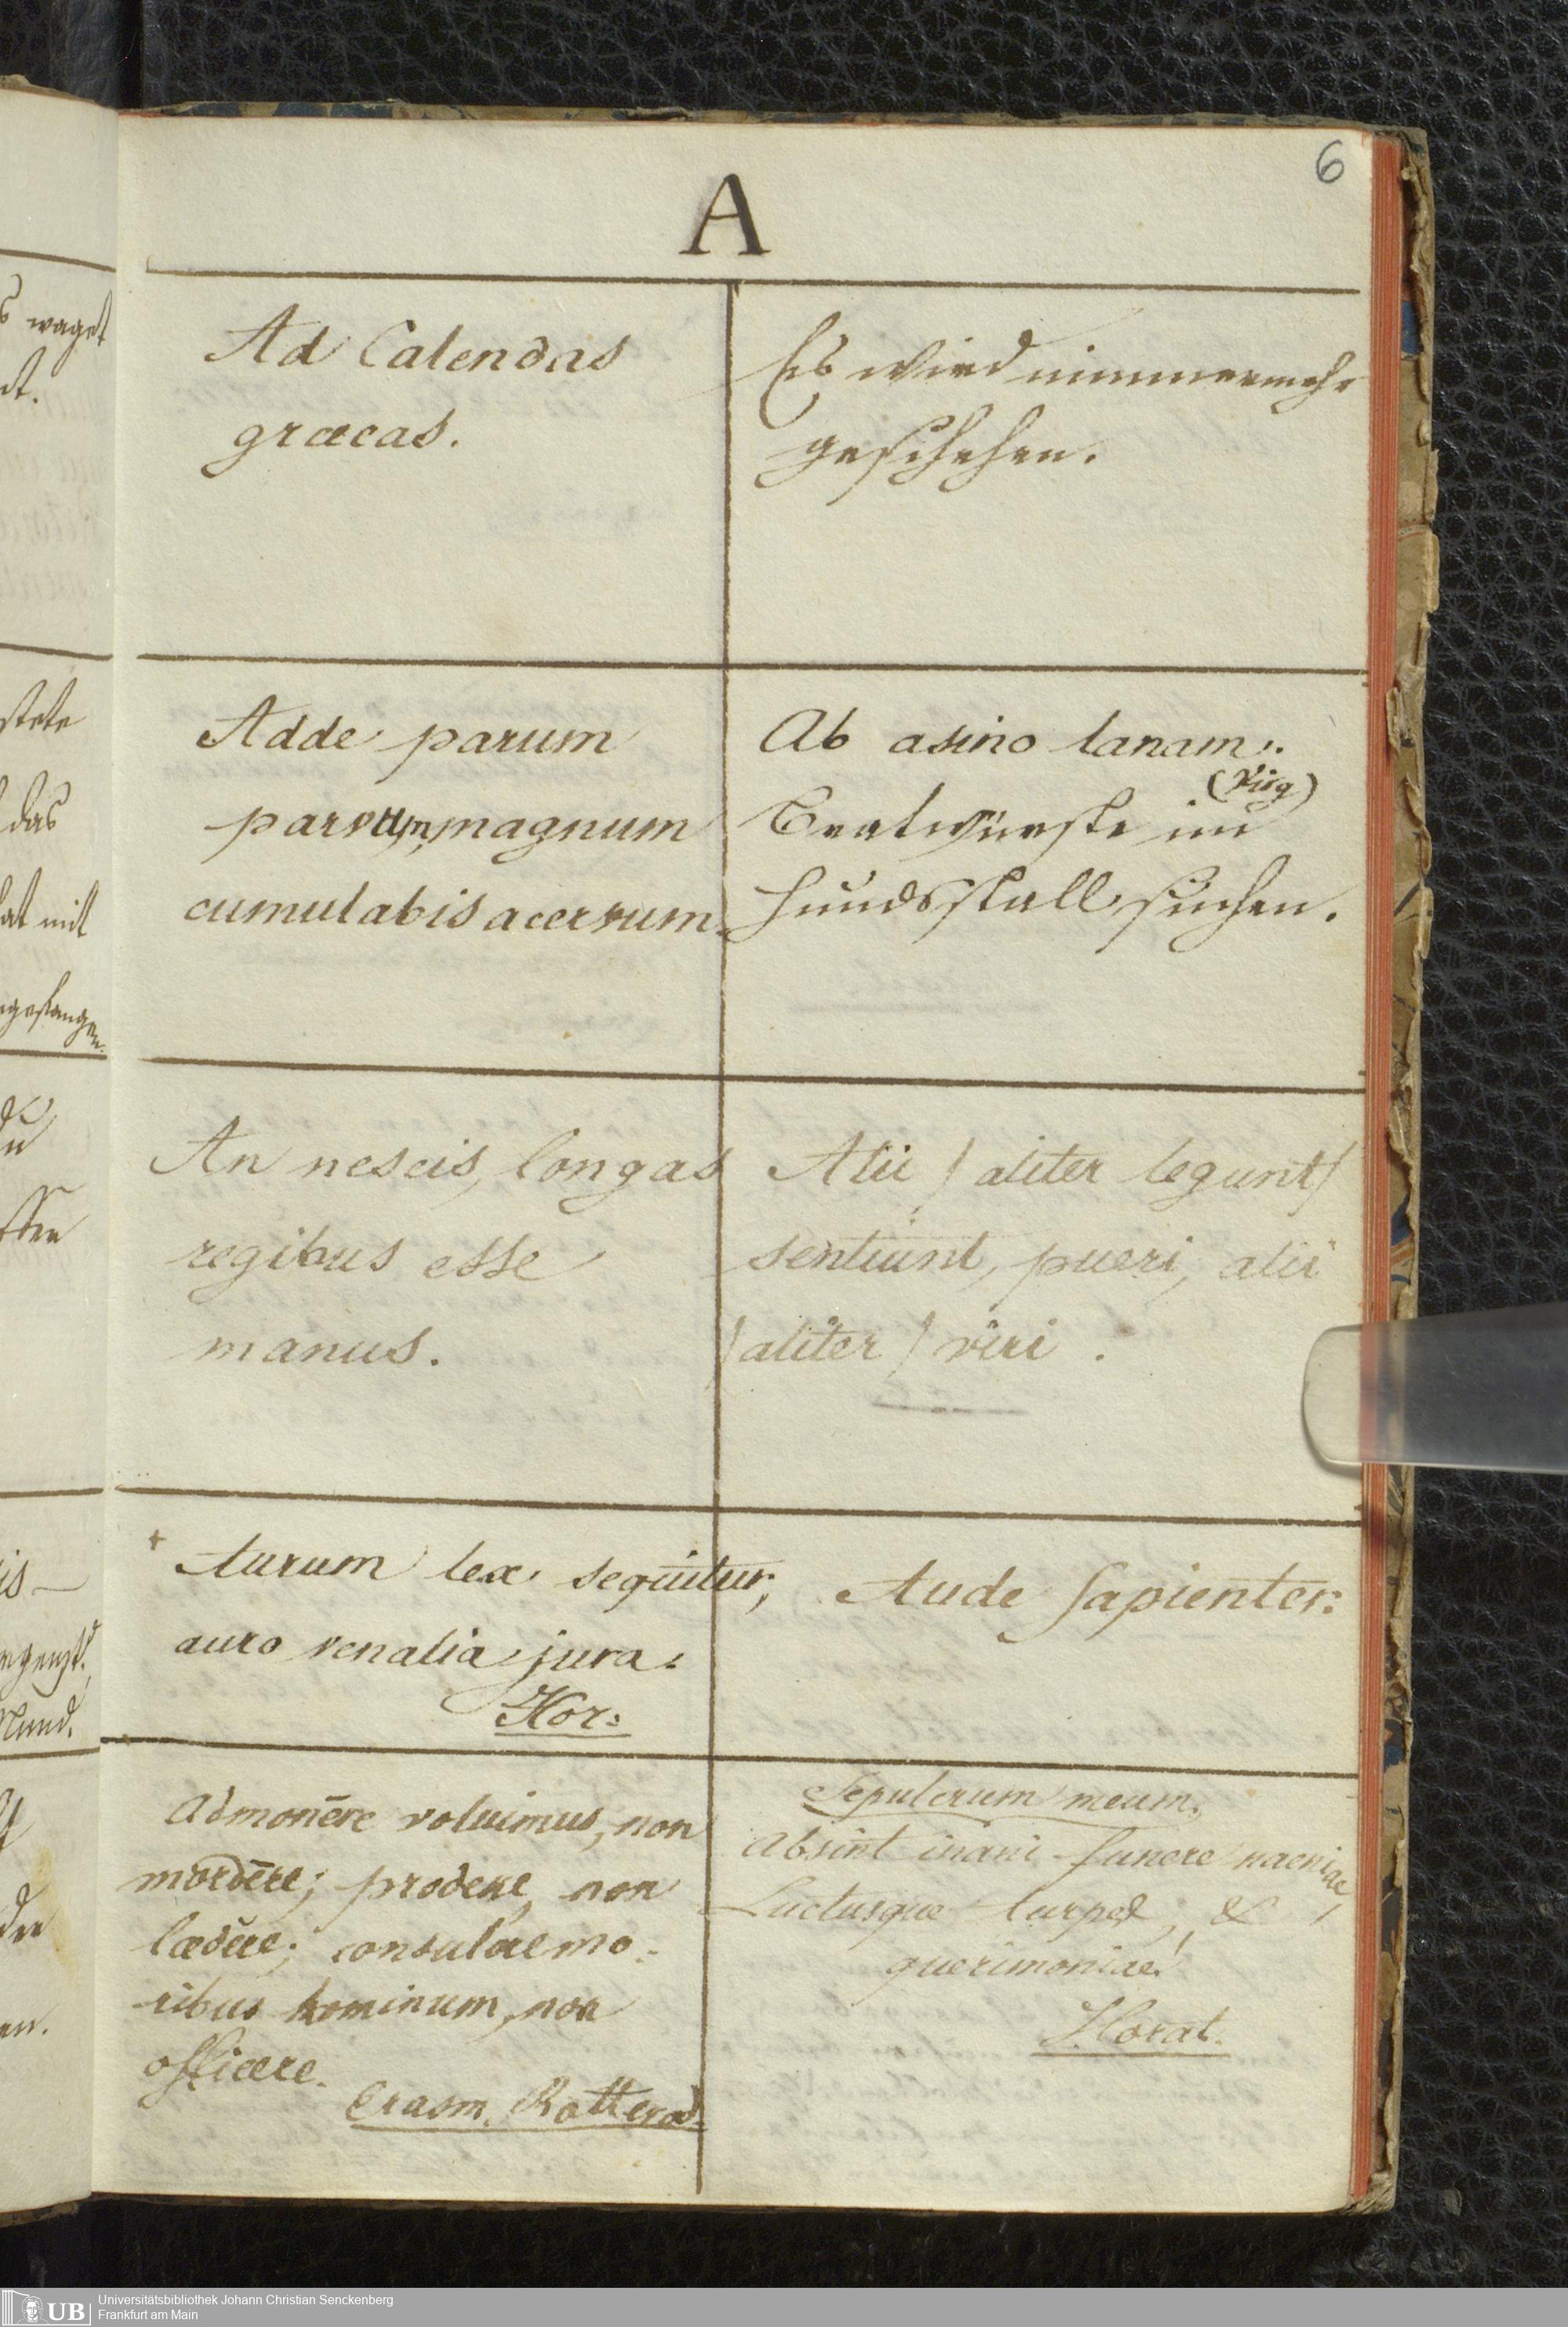 6
A
Ad Calendas
græcas.
Es wird nimmermehr
geschehen.
Adde parum
parvum, magnum
cumulabis acervum.
Ab asino lanam.
(Virg)
Bratwürste im
Hundsstall suchen.
An nescis, longas
regibus esse
manus.
Alii / aliter legunt /
sentiunt, pueri, alii
/ aliter / viri .
+ Aurum lex sequitur;
auro venalia jura.
Hor:
Aude sapienter:
Admonēre voluimus, non
mordēre; prodesse, non
lædĕre; consulere mo-
ribus hominum, non
officere.
Erasm. Rotterod.
Sepulcrum meum.
Absint inani funere naeniae,
Luctusque turpes, &
querimoniae!
Horat.
waget
das
hat mit
Universitätsbibliothek Johann Christian Senckenberg
Frankfurt am Main
UB